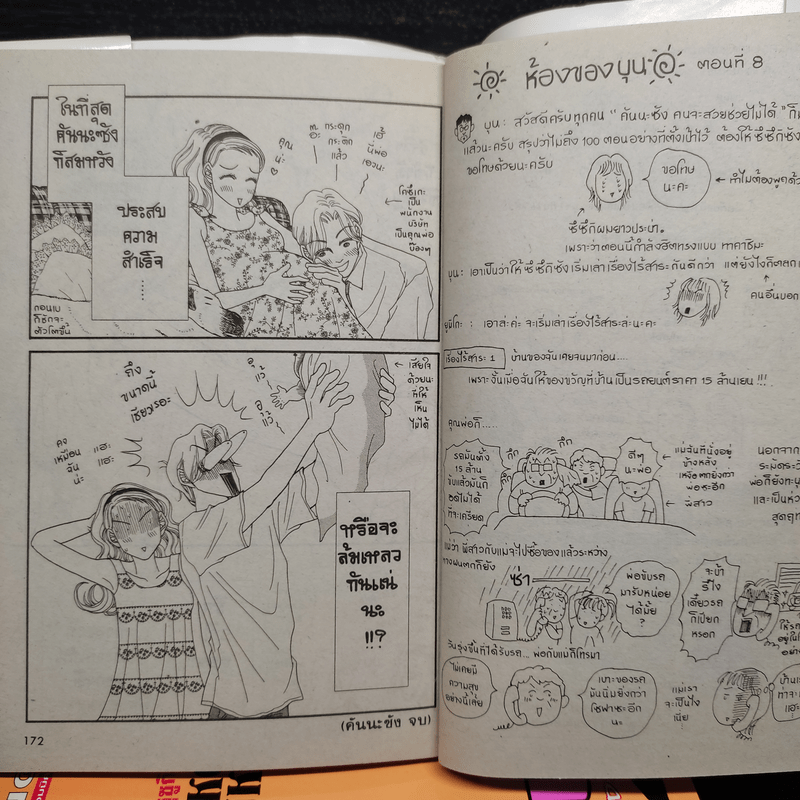 ในที่สุด
คันนะซัง
ก็สมหวัง
ประสบ
ความ
สำเร็จ
......
คุณ
น่ะ
กระดุก
กระดิก
แล้ว
เฮ้
นี่พ่อ
เองนะ
โคสึเกะ
เป็น
พนักงาน
บริษัท
เป็นคุณพ่อ
บ๊องๆ
ตอนเบ
ก็ชักจะ
ตัวโตขึ้น
ถึง
ขนาดนี้
เชียวเรอะ
อุ
แว้
อุ
แว้
เสียใจ
ด้วยนะ
ที่ให้
เห็น
ไม่ได้
คง
เหมือน
ฉัน
น่ะ
แฮะ
แฮะ
หรือจะ
ล้มเหลว
กันแน่
นะ
!!?
(คันนะซัง จบ)
172
ห้องของบุน ตอนที่ 8
บุน : สวัสดีครับทุกคน "คันนะซัง คนจะสวยช่วยไม่ได้" ก็
แล้วนะครับ สรุปว่าไม่ถึง 100 ตอนอย่างที่ตั้งเป้าไว้ ต้องให้ซึซึกิซัง
ขอโทษด้วยนะครับ
ขอโทษ
นะคะ
ทำไมต้องพูดด้ว
ซึซึกิผมยาวประบ่า.
เพราะว่าตอนนี้กำลังฮิตทรงแบบ ทาคาชิมะ
บุน : เอาเป็นว่าให้ ซึซึกิซัง เริ่มเล่าเรื่องไร้สาระกันดีกว่า แต่ยังไงก็ตลก
คนอื่นบอก
ยูมิโกะ : เอาล่ะค่ะ จะเริ่มเล่าเรื่องไร้สาระล่ะนะคะ
เรื่องไร้สาระ 1 บ้านของฉันเคยจนมาก่อน....
เพราะงั้นเมื่อฉันให้ของขวัญที่บ้าน เป็นรถยนต์ราคา 15 ล้านเยน !!!
คุณพ่อก็.....
รถมันตั้ง
15 ล้าน
ขับแล้วมันก็
อดไม่ได้
ที่จะเครียด
กึก
กึก
ดีๆ
นะพ่อ
แม่ฉันที่นั่งอยู่
ข้างหลัง
เหงื่อตกยิ่งกว่า
พ่อซะอีก
พี่สาว
นอกจาก
ระมัดระวั
พ่อก็ยังทะนุ
และเป็นห่วง
สุดฤท
แม้ว่า พี่สาวกับแม่จะไปซื้อของแล้วระหว่าง
ทางฝนตกก็ยัง
ซ่า
พ่อขับรถ
มารับหน่อย
ได้มั้ย
?
จะบ้า
รึไง
เดี๋ยวรถ
ก็เปียก
หรอก
ให้รถ
อยู่ใน
อย่าง
วันรุ่งขึ้นที่ได้รับรถ... พ่อกับแม่ก็โทรมา
ไม่เคยมี
ความสุข
อย่างนี้เลย
เบาะของรถ
มันนิ่มยิ่งกว่า
โซฟาซะอีก
นะ
แม่เรา
จะเป็นไง
เนี่ย